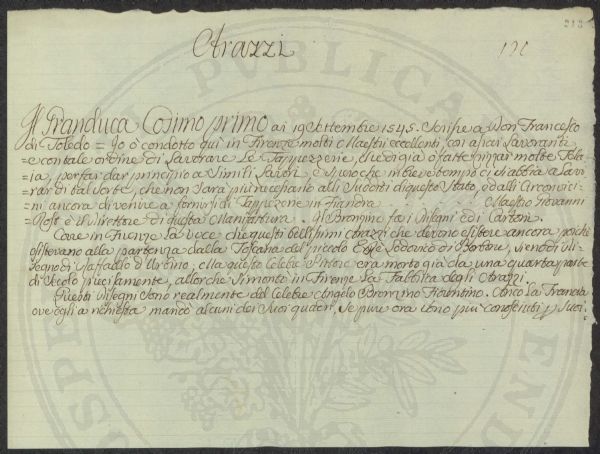 213
Arazzi
Il Granduca Cosimo primo ai 19 Settembre 1545. Scrisse a Don Francesco
di Toledo = Io ò condotto quì in Firenze molti Maestri eccellenti, con assai Lavoranti
= e con tale ordine di Lavorare Le Tappezzerie, che di già ò fatte
= ia, per far dar principio a Simili Lavori, e Spero che in breve tempo ci s'abbia a Lavo
rar di tal sorte, che non sarà più necessario alli Sudditi di questo Stato, o dalli Circonvici
= ni ancora di venire a fornirsi di Tappezzerie in Fiandra. Maestro Giovanni
= Rost è il Direttore di questa Manifattura. Il Bronzino fa i Disegni ed i Cartoni.
Corre in Firenze La voce che questi bellissimi Arazzi che devono esistere ancora, poichè
esistevano alla partenza dalla Toscana del piccolo Ex Rè Lodovico di Borbone, sieno di Di=
segno di Raffaello d'Urbino; Ma questo Celebre Pittore era morto già da una quarta parte
di Secolo precisamente, allorchè Si montò in Firenze La Fabbrica degli Arazzi.
Questi Disegni sono realmente del Celebre Angelo Bronzino Fiorentino. Anco La Francia
ove egli a richiesta mandò alcuni dei Suoi quadri, Se pure ora sono più conosciuti p Suoi.
PVBLICA